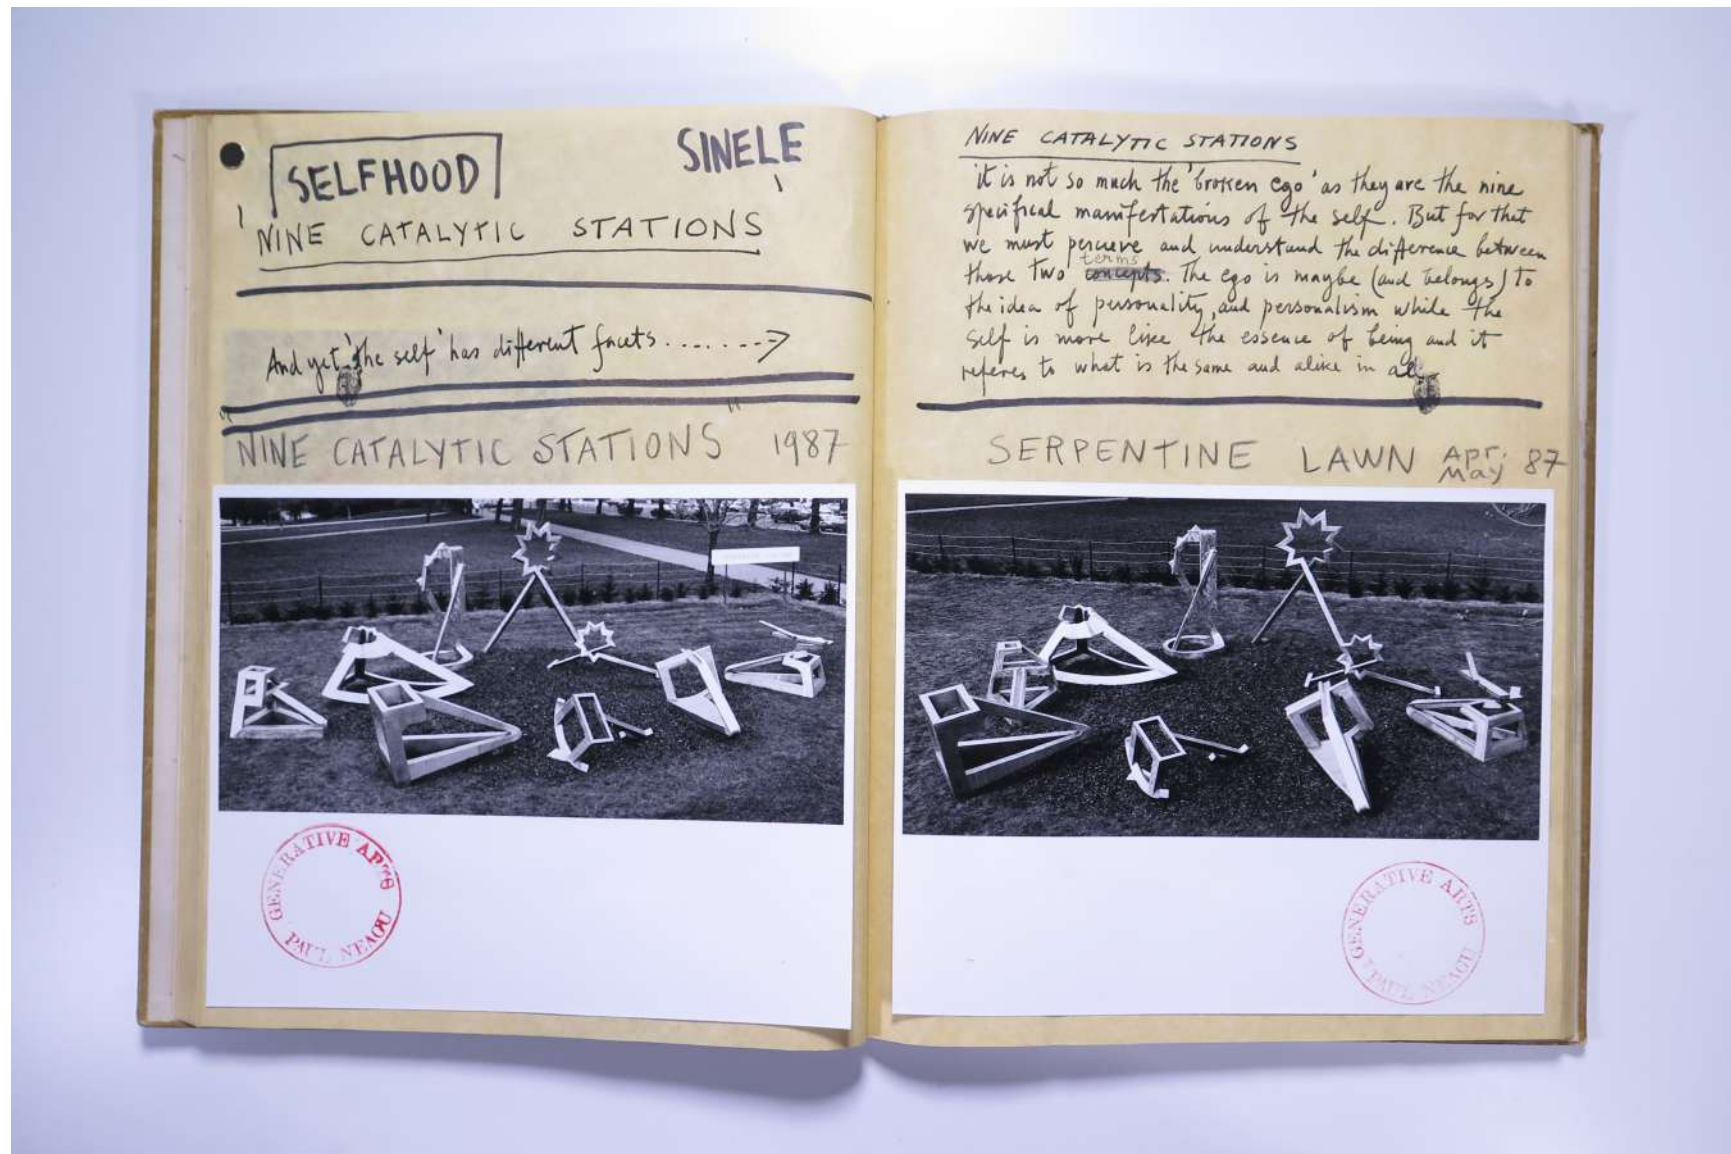 SELFHOOD
SINELE
'NINE CATALYTIC STATIONS'
And yet 'the self' has different facets.......->
"NINE CATALYTIC STATIONS" 1987
GENERATIVE ARTS
PAUL NEAGU
NINE CATALYTIC STATIONS
it is not so much the 'broken ego' as they are the nine
specifical manifestations of the self. But for that
we must percieve and understand the difference between
those two concepts terms. The ego is maybe (and belongs) to
the idea of personality, and personalism while the
self is more like the essence of being and it
referes to what is the same and alike in all
SERPENTINE LAWN Apr. May 87
GENERATIVE ARTS
PAUL NEAGU